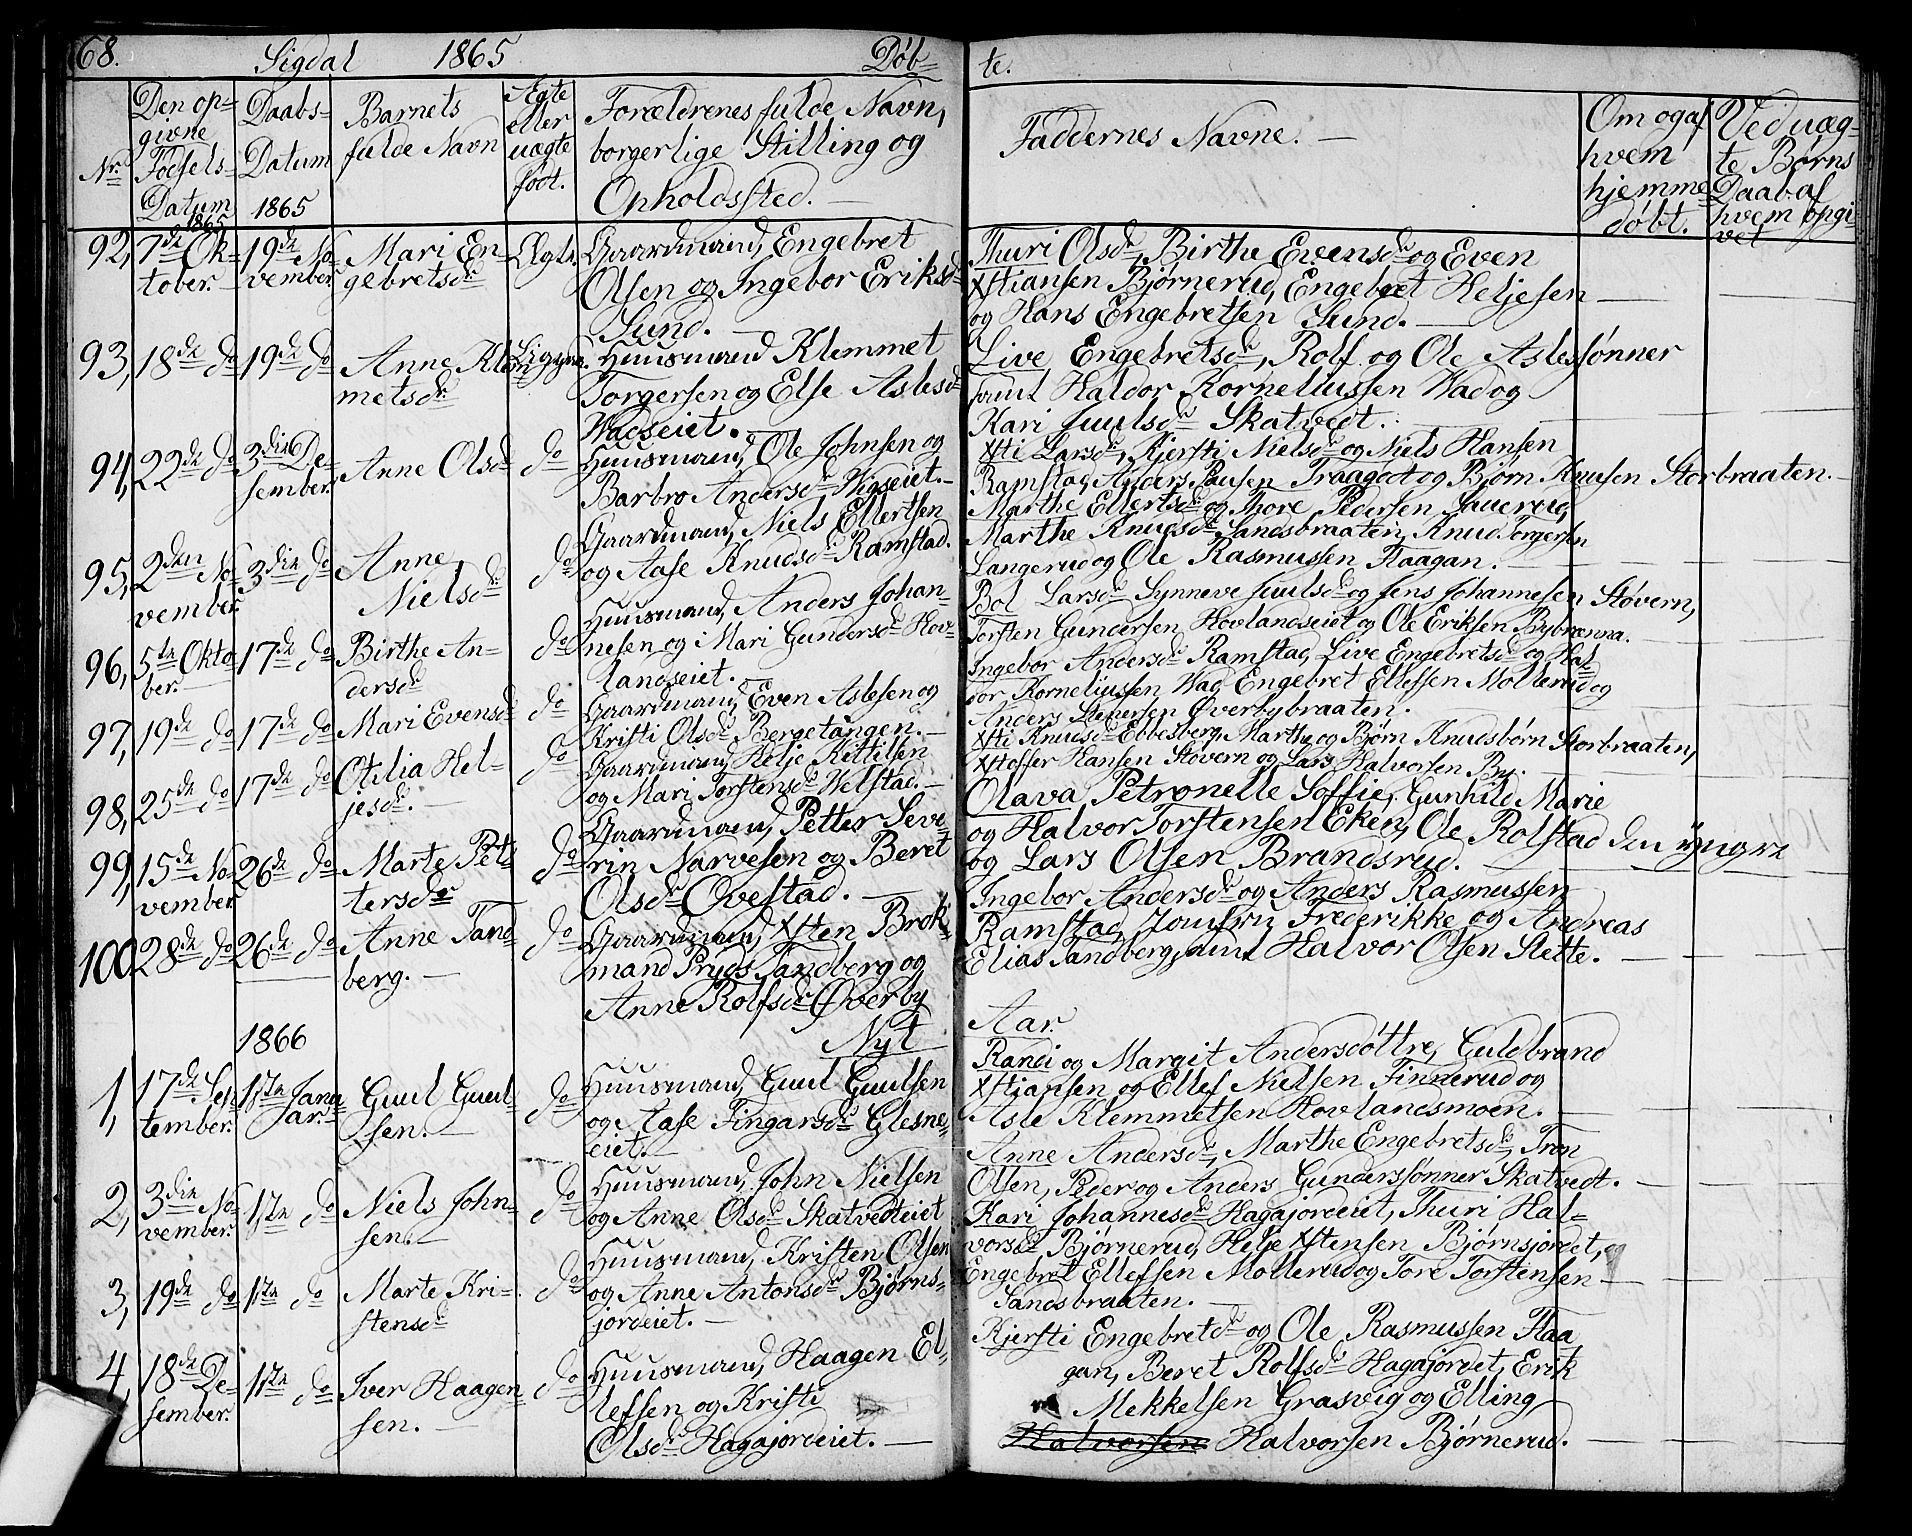 68. Sigdal 1865 Døb= te.
Nr.
Den op=
givne
Fødsels=
Datum
1865
Daabs=
Datum
1865
Barnets
fulde Navn
Ægte
eller
uægte
født.
Forældrenes fulde Navn,
borgerlige Stilling og
Opholdssted. —
Faddernes Navne. —
Om og af
hvem
hjemme
døbt.
Ved uæg=
te Børns
Daab af
hvem opgi
vet
92, 7de Ok=
tober.
19de No=
vember.
Mari En=
gebretsdr
Ægte.
Gaardmand, Engebret
Olsen og Ingebor Eriksdr
Lund. —
Thuri Olsdr, Birthe Evensdr og Even
Xstiansen Bjørnerud, Engebret Heljesen
og Hans Engebretsen Lund. —
93, 18de do
19de do
Anne Klem
metsdr.
Ligger.
Huusmand Klemmet
Torgersen og Else Aslesdr
Wadseiet. —
Live Engebretsdr, Rolf og Ole Aslessønner
samt Haldor Korneliussen Wad og
Kari Juulsdr Skatvedt.
94, 22de do
3die De=
sember.
Anne Olsdr
do
Huusmand, Ole Johnsen og
Barbro Andersdr Wigseiet. —
Xsti Larsdr, Kjersti Nielsdr og Niels Hansen
Ramstad, Anders Paulsen Traagodt og Bjørn Knusen Storbraaten. —
95, 2den No=
vember.
3die do
Anne
Nielsdr
do
Gaardmand, Niels Ellertsen
og Aase Knudsdr Ramstad.
Marthe Ellertsdr og Thore Pedersen Lauerud,
Marthe Knudsdr Sandsbraaten, Knud Torgersen
Langerud og Ole Rasmussen Flaagan. —
96, 5te Okto
ber. —
17de do
Birthe An=
dersdr
do
Huusmand, Anders Johan=
nesen og Mari Gundersdr Hov=
landseiet. —
Bol Larsdr Synneve Juulsdr og Jens Johannesen Støvern,
Torsten Gundersen Hovlandseiet og Ole Eriksen Bybrænna. —
97, 19de do
17de do
Mari Evensdr
do
Gaardmand, Even Aslesen og
Kristi Olsdr Bergetangen. —
Ingebor Andersdr Ramstad, Live Engebretsdr og Hal
dor Korneliussen Wad Engebret Ellefsen Mollerud og
Anders Stenersen Øverbybraaten.
98, 25de do
17de do
Otilia Hel=
jesdr. —
do
Gaardmand Helje Kittilsen
og Mari Torstensdr Welstad. —
Xsti Knudsdr Ebbesberg, Marthe og Bjørn Knudsbørn Storbraaten,
Xstoffer Hansen Støvern og Lars Halvorsen By.
99, 15de No=
vember.
26de do
Marte Pet=
tersdr
do
Gaardmand, Petter Seve=
rin Narvesen og Beret
Olsdr Ovestad. —
Olava Petronelle Soffie, Gunhild Marie
og Halvor Torstensen Eken, Ole Rolstad den yngre
og Lars Olsen Brandsrud.
100 28de do
26de do
Anne Tand=
berg. —
do
Gaardmand, Xsten Brok=
mand Pryds Tandberg og
Anne Rolfsdr Øverby
Ingebor Andersdr og Anders Rasmussen
Ramstad, Jomfru Frederikke og Andreas
Elias Tandberg, samt Halvor Olsen Slette. —
1866
Nyt Aar.
1, 17de Sep
tember.
1ste Janu
ar.
Guul Guul=
sen. —
do
Huusmand, Guul Guulsen
og Aase Fingarsdr Glesne=
eiet. —
Randi og Margit Andersdøttre, Guldbrand
Xstiansen og Ellef Nielsen Finnerud og
Asle Klemmetsen Hovlandsmoen. —
2, 3die No=
vember.
1ste do
Niels John=
sen. —
do
Huusmand, John Nielsen
og Anne Olsdr Skatvedteiet
Anne Andersdr, Marthe Engebretsdr, Tron
Olsen, Peder og Anders Gunderssønner Skatvedt. —
3, 19de do
1ste do
Marte Kri=
stensdr
do
Huusmand, Kristen Olsen
og Anne Antonsdr Bjørns=
jordeiet. —
Kari Johannesdr Hagajordeiet, Thuri Hal=
vorsdr Bjørnerud, Helje Xstensen Bjørnsjordet,
Engebret Ellefsen Mollerud og Tore Torstensen
Sandsbraaten. —
4, 18de De=
sember.
1ste do
Iver Haagen
sen. —
do
Huusmand, Haagen El=
lefsen og Kristi
Olsdr Hagajordeiet. —
Kjersti Engebretdr og Ole Rasmussen Flaa
gan, Beret Rolfsdr Hagajordet, Erik
Mekkelsen Grasvig og Elling
Halvorsen Halvorsen Bjørnerud. —